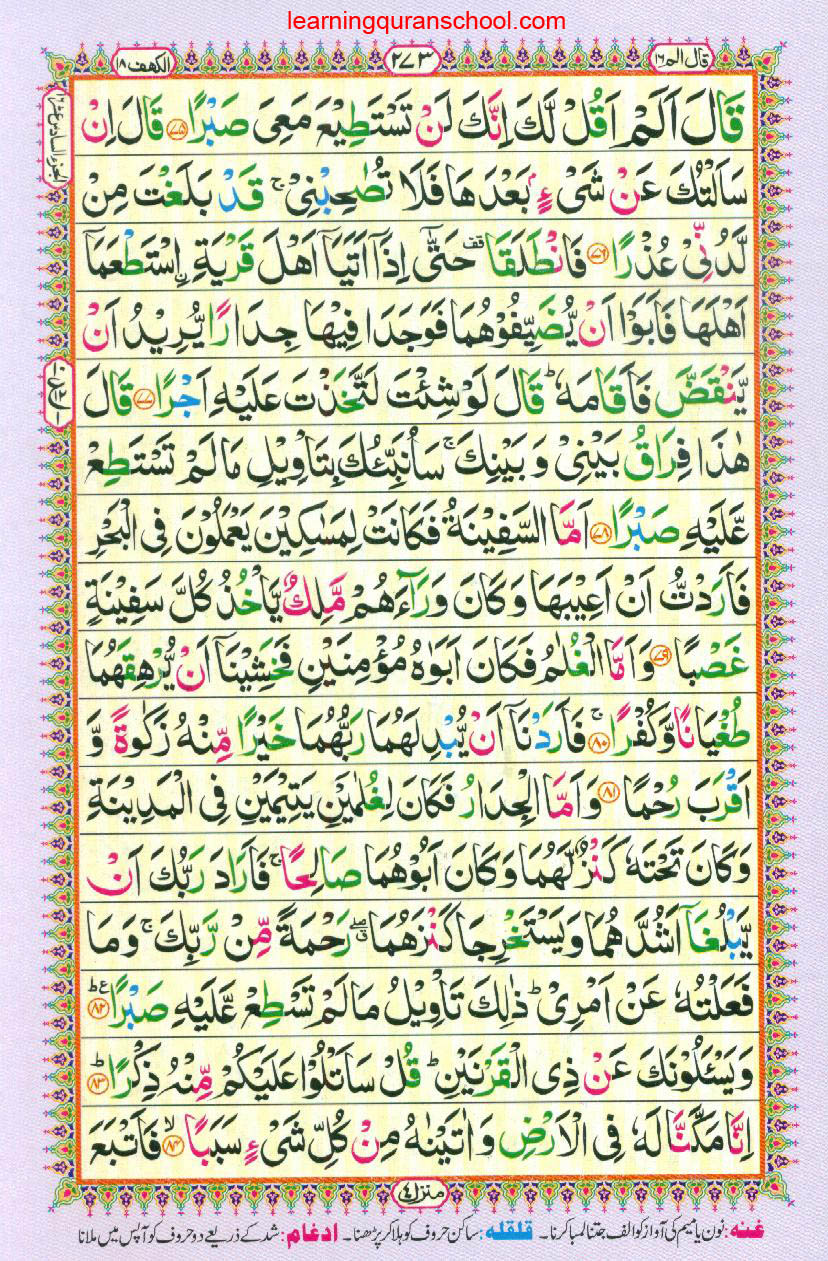 learningquranschool.com
قال الم ١٦
٢٧٣
الكهف ١٨
قَالَ اَلَمْ اَقُلْ لَّكَ اِنَّكَ لَنْ تَسْتَطِيْعَ مَعِىَ صَبْرًا ﴿۷۵﴾ قَالَ اِنْ
سَاَلْتُكَ عَنْ شَىْءٍۭ بَعْدَهَا فَلَا تُصٰحِبْنِىْ ۚ قَدْ بَلَغْتَ مِنْ
لَّدُنِّىْ عُذْرًا ﴿۷۶﴾ فَانْطَلَقَا ٚ حَتّٰٓى اِذَاۤ اَتَيَاۤ اَهْلَ قَرْيَةِ ࣙاسْتَطْعَمَاۤ
اَهْلَهَا فَاَبَوْا اَنْ يُّضَيِّفُوْهُمَا فَوَجَدَا فِيْهَا جِدَارًا يُّرِيْدُ اَنْ
يَّنْقَضَّ فَاَقَامَهٗ ؕ قَالَ لَوْ شِئْتَ لَتَّخَذْتَ عَلَيْهِ اَجْرًا ﴿۷۷﴾ قَالَ
هٰذَا فِرَاقُ بَيْنِىْ وَ بَيْنِكَ ۚ سَاُنَبِّئُكَ بِتَاْوِيْلِ مَا لَمْ تَسْتَطِعْ
عَّلَيْهِ صَبْرًا ﴿۷۸﴾ اَمَّا السَّفِيْنَةُ فَكَانَتْ لِمَسٰكِيْنَ يَعْمَلُوْنَ فِى الْبَحْرِ
فَاَرَدْتُّ اَنْ اَعِيْبَهَا وَ كَانَ وَرَآءَهُمْ مَّلِكٌ يَّاْخُذُ كُلَّ سَفِيْنَةٍ
غَصْبًا ﴿۷۹﴾ وَ اَمَّا الْغُلٰمُ فَكَانَ اَبَوٰهُ مُؤْمِنَيْنِ فَخَشِيْنَاۤ اَنْ يُّرْهِقَهُمَا
طُغْيَانًا وَّ كُفْرًا ۚ ﴿۸۰﴾ فَاَرَدْنَاۤ اَنْ يُّبْدِلَهُمَا رَبُّهُمَا خَيْرًا مِّنْهُ زَكٰوةً وَّ
اَقْرَبَ رُحْمًا ﴿۸۱﴾ وَ اَمَّا الْجِدَارُ فَكَانَ لِغُلٰمَيْنِ يَتِيْمَيْنِ فِى الْمَدِيْنَةِ
وَ كَانَ تَحْتَهٗ كَنْزٌ لَّهُمَا وَ كَانَ اَبُوْهُمَا صَالِحًا ۚ فَاَرَادَ رَبُّكَ اَنْ
يَّبْلُغَاۤ اَشُدَّهُمَا وَيَسْتَخْرِجَا كَنْزَهُمَا ۖ ق رَحْمَةً مِّنْ رَّبِّكَ ۚ وَمَا
فَعَلْتُهٗ عَنْ اَمْرِىْ ؕ ذٰلِكَ تَاْوِيْلُ مَا لَمْ تَسْطِعْ عَّلَيْهِ صَبْرًا ؕ ع ﴿۸۲﴾
وَيَسْـَٔلُوْنَكَ عَنْ ذِى الْقَرْنَيْنِ ؕ قُلْ سَاَتْلُوْا عَلَيْكُمْ مِّنْهُ ذِكْرًا ؕ ﴿۸۳﴾
اِنَّا مَكَّنَّا لَهٗ فِى الْاَرْضِ وَ اٰتَيْنٰهُ مِنْ كُلِّ شَىْءٍ سَبَبًا ۙ ﴿۸۴﴾ فَاَتْبَعَ
منزل ٤
غنه: نون یا میم کی آواز کو الف جتنا لمبا کرنا۔ قلقله: ساکن حروف کو ہلا کر پڑھنا۔ ادغام: شد کے ذریعے دو حروف کو آپس میں ملانا